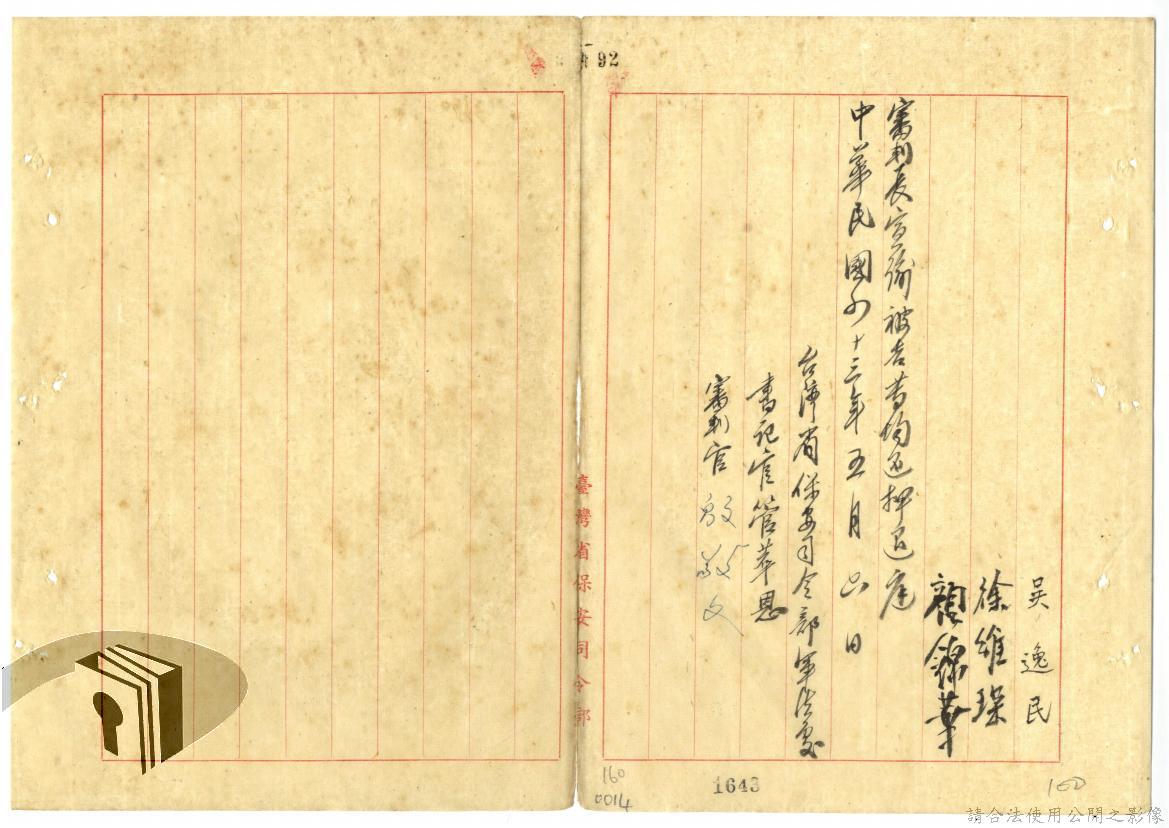 92
吳逸民
徐維琛
顏錦華
審判長宣諭被告等均還押退庭
中華民國四十三年五月六日
台灣省保安司令部軍法處
書記官管萃恩
審判官殷敬文
臺灣省保安司令部
160
0014
1643
100
請合法使用公開之影像